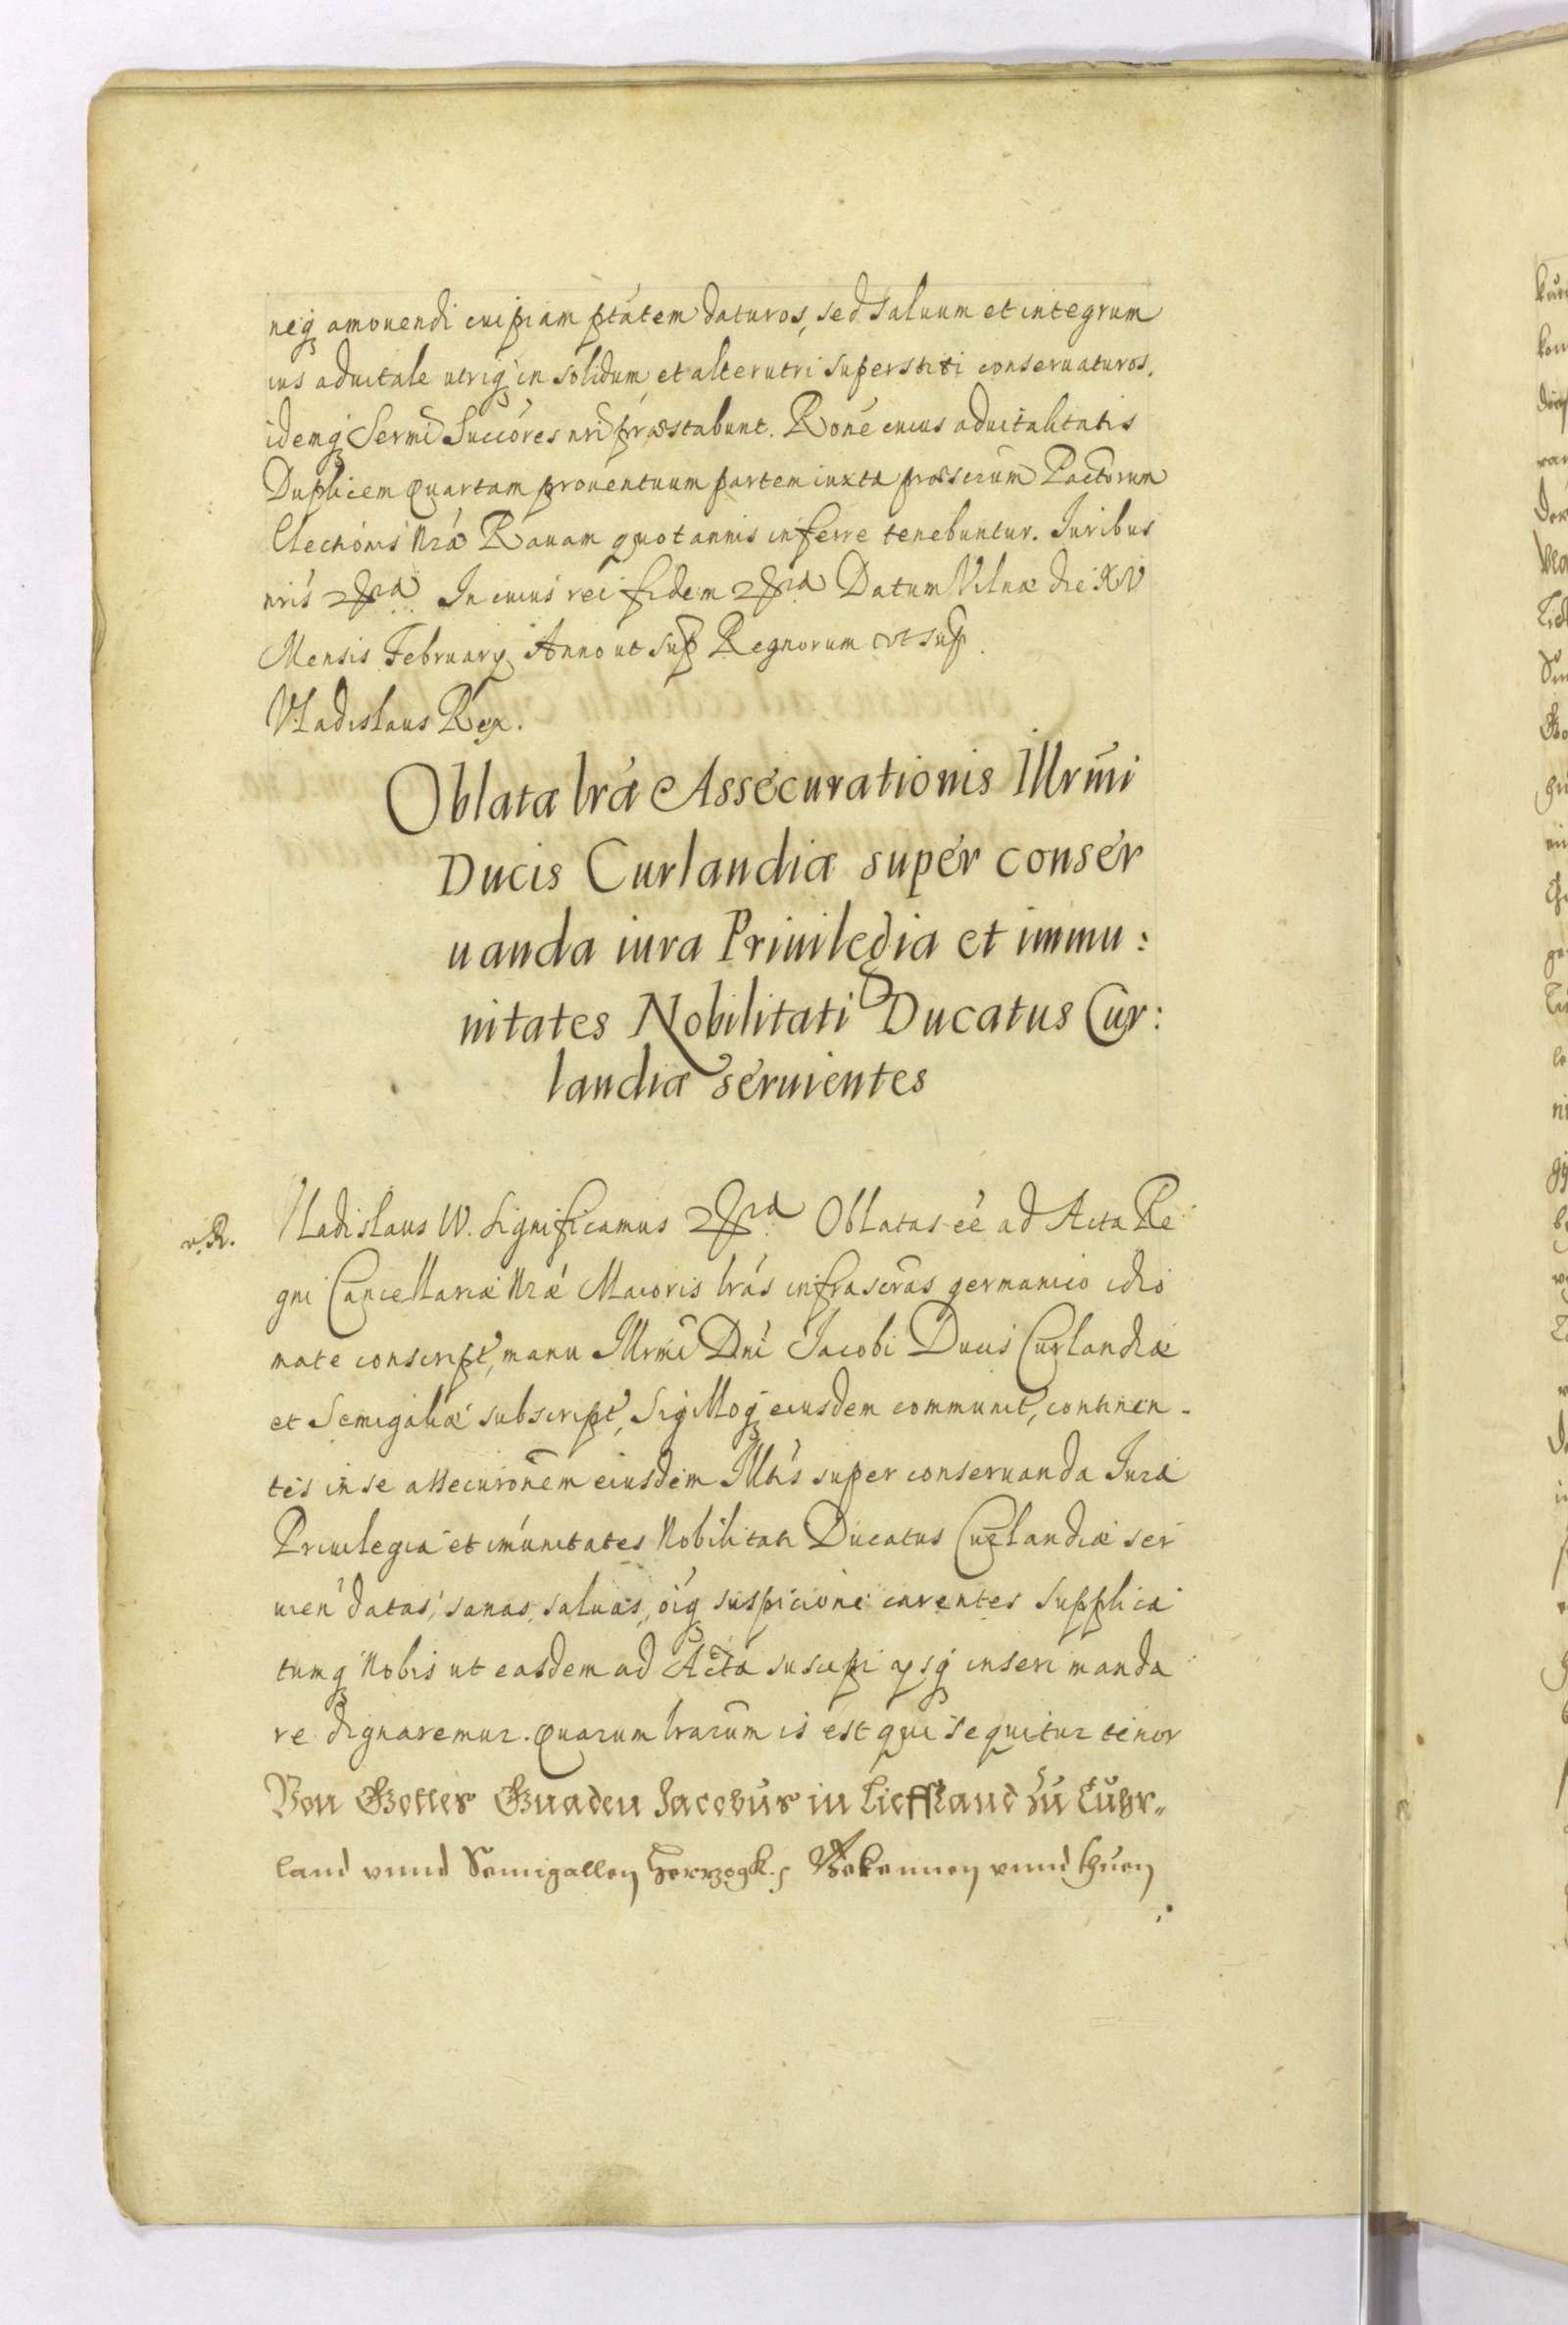 neq amouendi cuipiam ptatem daturos, sed saluum et integrum
ius aduitale utriq in solidum et alterutri superstiti conseruaturos,
idemq Sermi Succores nri præstabunt. Rone cuius aduitalitatis
Duplicem quartam prouentuum partem iuxta præscrum Pactorum
Electionis Nræ Rauam quotannis inferre tenebuntur. Iuribus
nris In cuius rei fidem Datum Vilnæ die XV
Mensis February Anno ut sup Regnorum vt sup.
Vladislaus Rex.
Oblatæ lræ Assecurationis Illrmi
Ducis Curlandiæ super conser
uanda iura Priuilegia et immu:
nitates Nobilitati Ducatus Cur:
landiæ seruientes
v. R.
Vladislaus IV. Significamus Oblatas ee ad Acta Re
gni Cancellariæ Nræ Maioris lras infrascras germanico idio
mate conscript, manu Illrmi Dni Jacobi Ducis Curlandiæ
et Semigaliæ subscript, Sigilloq eiusdem communit, continen-
tes in se assecuronem eiusdem Illtis super conseruanda Iura
Priuilegia et imunitates Nobilitati Ducatus Curlandiæ ser
uien datas, sanas, saluas, oiq suspicione carentes supplica
tumq Nobis ut easdem ad Acta suscipi ysq inseri manda
re dignaremur. Quarum lrarum is est qui sequitur tenor
Von Gottes Gnaden Jacobus in Lieffland zu Cuhr„
land vnnd Semigallen Hertzogk. Bekennen vnnd thuen